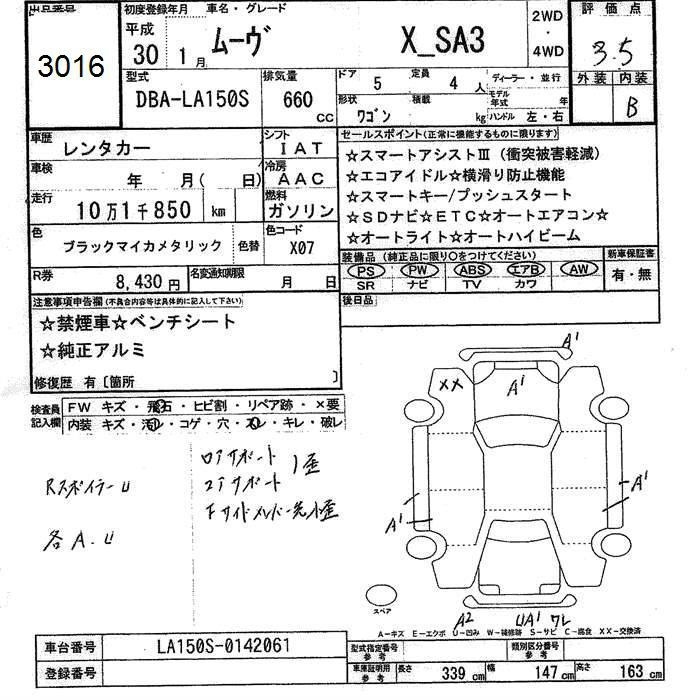 出品番号 初度登録年月 車名・グレード 2WD・4WD 評価点
3016 平成30 1月 ムーヴ X_SA3 3.5
型式 排気量 ドア 5 定員 4人 ディーラー・並行 外装 内装
DBA-LA150S 660 CC 形状 ワゴン 積載 kg モデル年式 年 ハンドル 左・右 B
車歴 レンタカー シフト IAT セールスポイント(正常に機能するものに限ります)
車検 年 月( 日) 冷房 AAC ☆スマートアシストⅢ(衝突被害軽減)
走行 10万1千850 km 燃料 ガソリン ☆エコアイドル☆横滑り防止機能
☆スマートキー/プッシュスタート
☆SDナビ☆ETC☆オートエアコン☆
☆オートライト☆オートハイビーム
色 ブラックマイカメタリック 色替 色コード X07
装備品(純正品に限り○をつけてください) 新車保証書
PS PW ABS エアB AW 有・無
SR ナビ TV カワ
R券 8,430円 名変通知期限 月 日 後日品
注意事項申告欄(不具合内容等は具体的に記入して下さい)
☆禁煙車☆ベンチシート
☆純正アルミ
修復歴 有〔箇所 〕
検査員記入欄 FW キズ・飛石・ヒビ割・リペア跡・×要
内装 キズ・汚レ・コゲ・穴・スレ・キレ・破レ
A1
XX
A1
RスポイラーU
各A.U
ロアサポート
コアサポート
1歪
A1
A1
スペア
A2 UA1 ワレ
A-キズ E-エクボ U-凹み W-補修跡 S-サビ C-腐食 XX-交換済
車台番号 LA150S-0142061 型式指定番号 参考 類別区分番号 参考
登録番号 車庫証明用 参考 長さ 339cm 幅 147cm 高さ 163cm